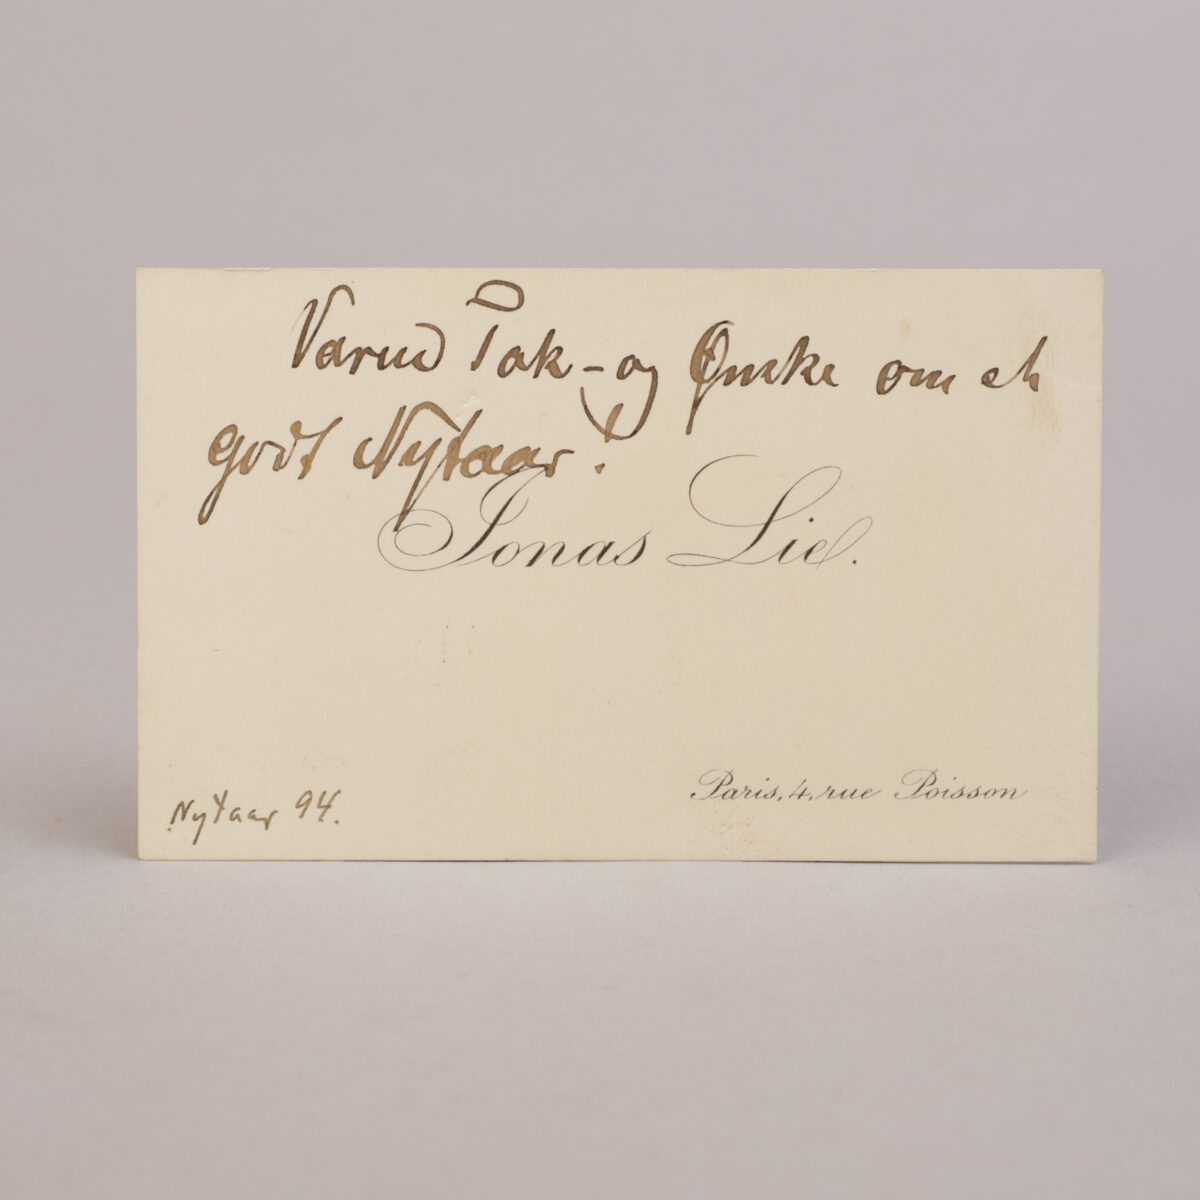 Varm Tak – og Ønske om et
godt Nytaar!
Jonas Lie.
Paris, 4, rue Poisson
Nytaar 94.